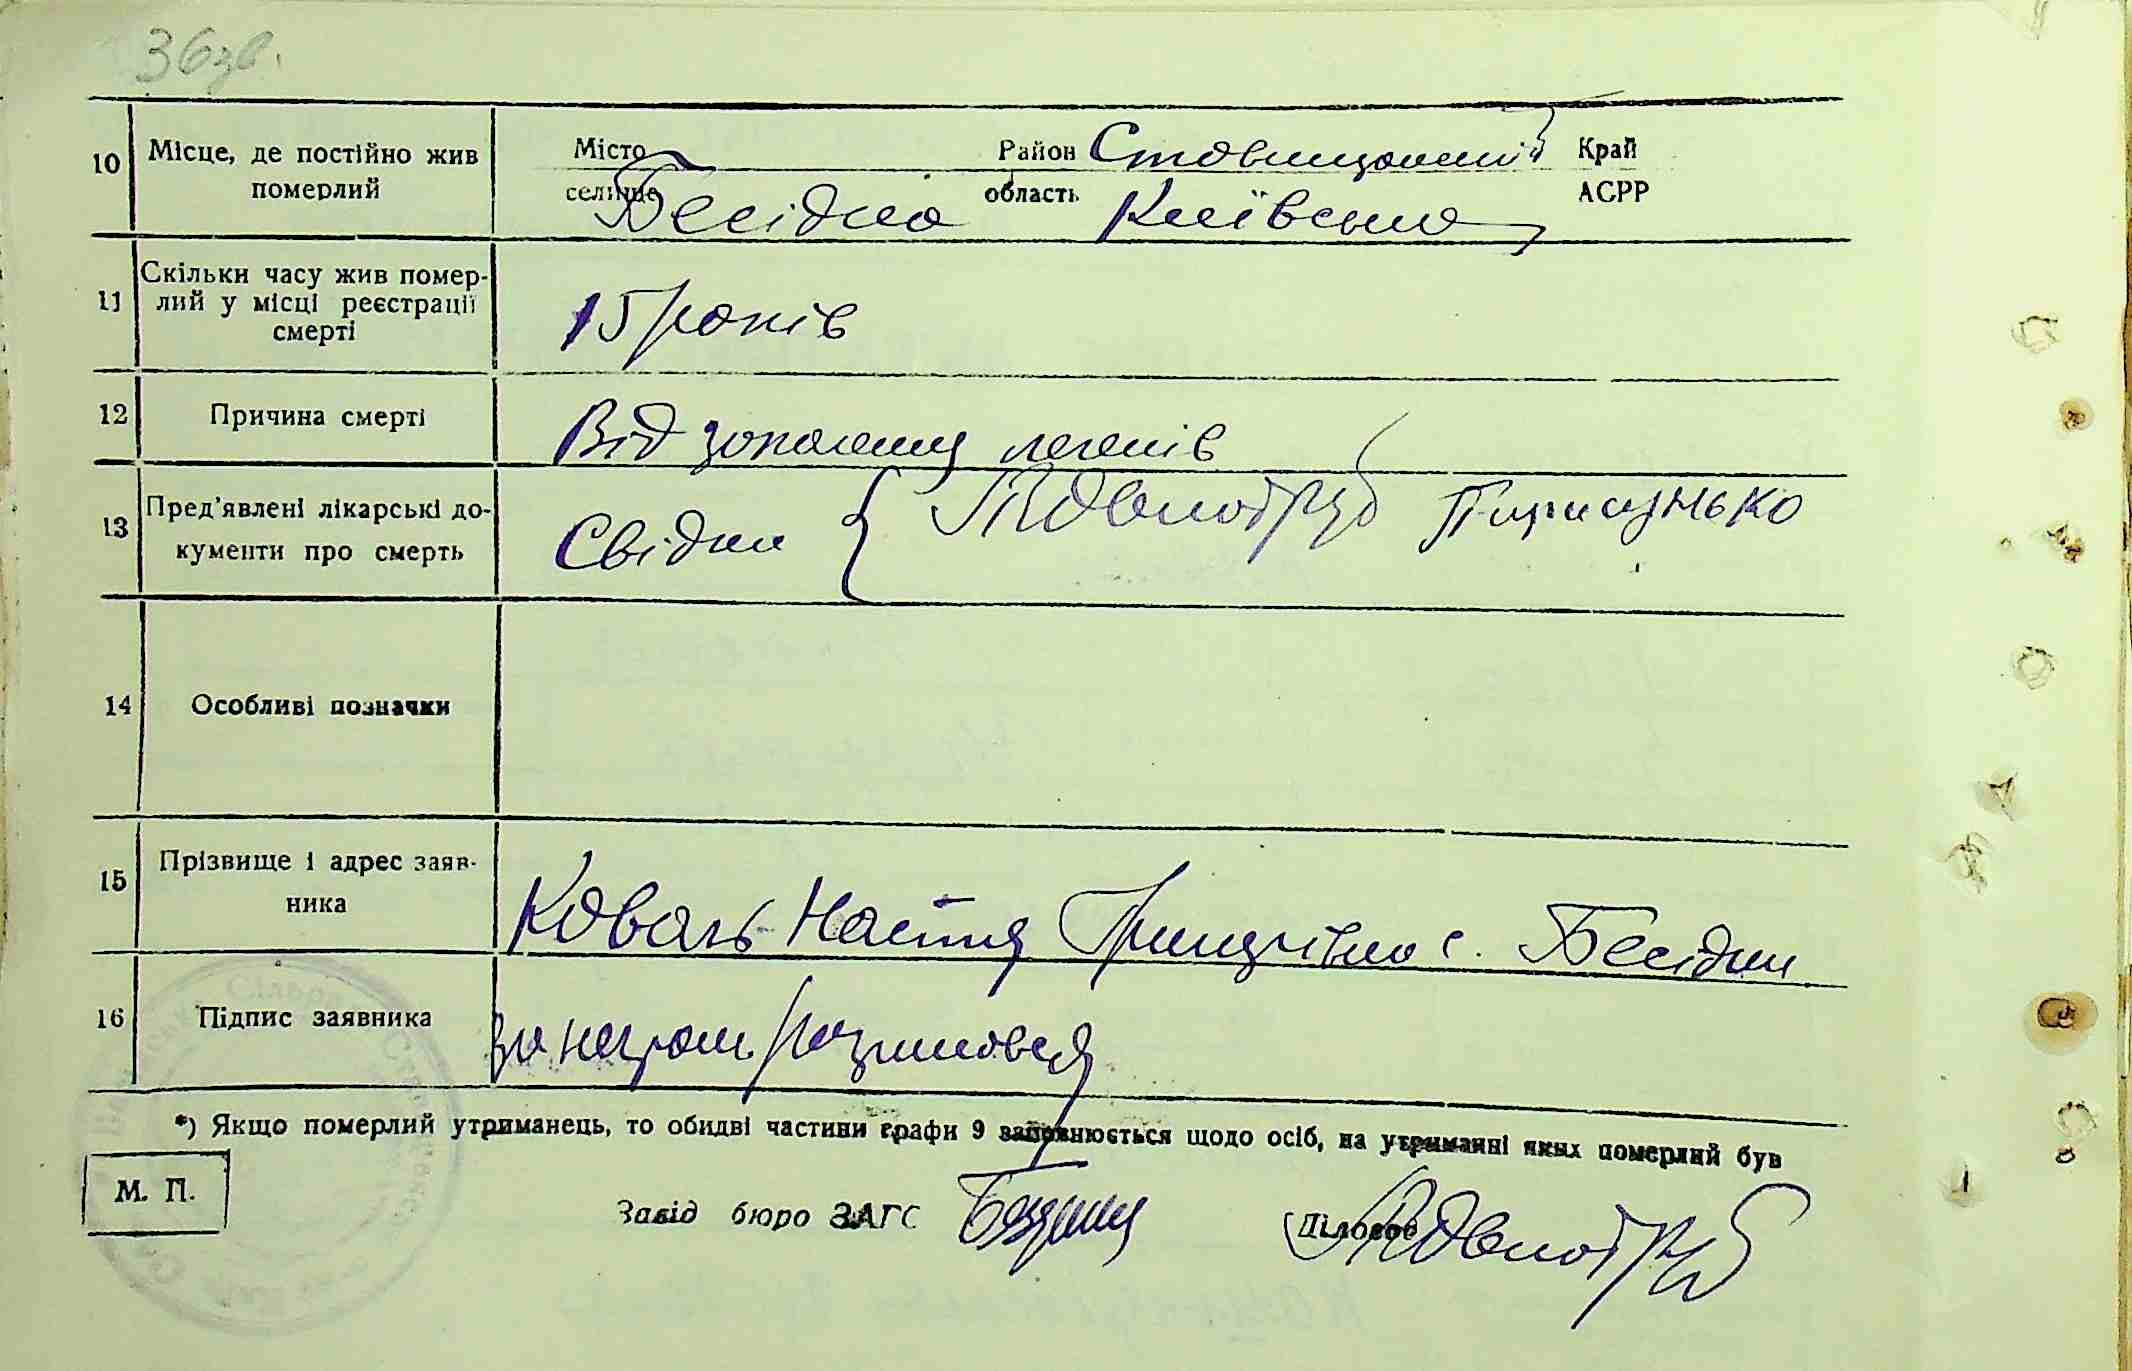 36зв.
10 Місце, де постійно жив померлий Місто Район Ставищанський Край
селище Бесідка область Київська АСРР
11 Скільки часу жив помер-
лий у місці реєстрації
смерті
15 років
12 Причина смерті Від запалення легенів
13 Пред'явлені лікарські до-
кументи про смерть
Свідки {
14 Особливі позначки
15 Прізвище і адрес заяв-
ника
Коваль Настя Грицьківна с. Бесідки
16 Підпис заявника за неграм розписовся
*) Якщо померлий утриманець, то обидві частини графи 9 заповнюється щодо осіб, на утриманні яких померлий був
М. П.
Завід бюро ЗАГС Діловод